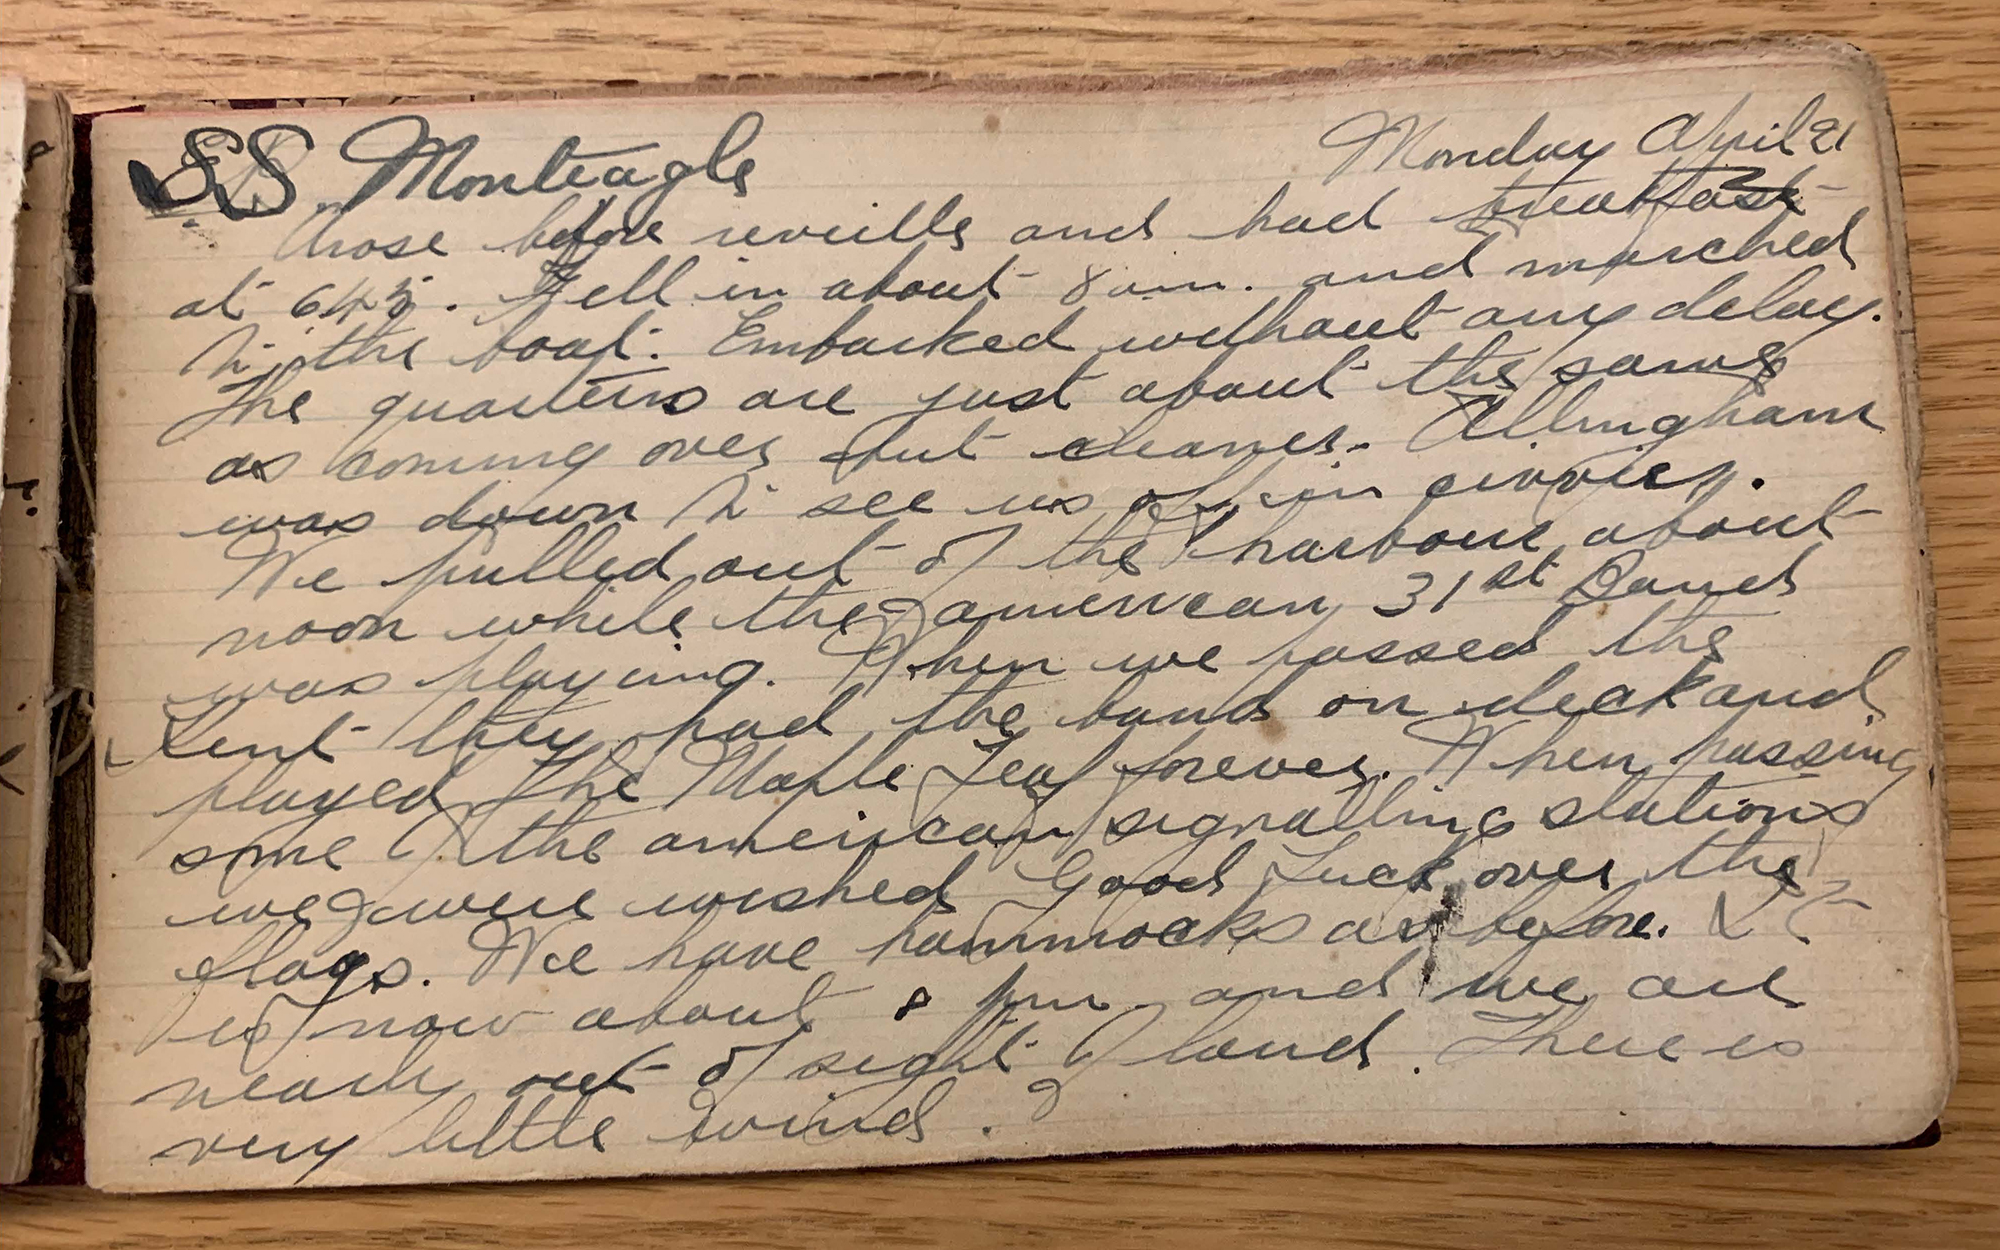 SS. Monteagle Monday April 21
Arose before reveille and had breakfast
at 645. Fell in about 8 a.m. and marched
to the boat. Embarked without any delay.
The quarters are just about the same
as coming over but cleaner. Allingham
was down to see us off in civvies.
We pulled out of the harbour about
noon while the american 31st Band
was playing. When we passed the
Kent they had the band on deck and
played The Maple Leaf forever. When passing
some of the american signalling stations
we were wished Good Luck over the
flags. We have hammocks as before. It
is now about 8 pm and we are
nearly out of sight of land. There is
very little wind.